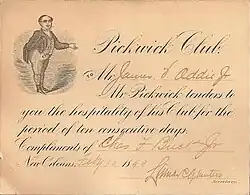 Pickwick Club.
To Mr James S Oddie Jr
Mr. Pickwick tenders to
you the hospitality of his Club for the
period of ten consecutive days.
Compliments of Chas F Buck Jr
New Orleans, 18